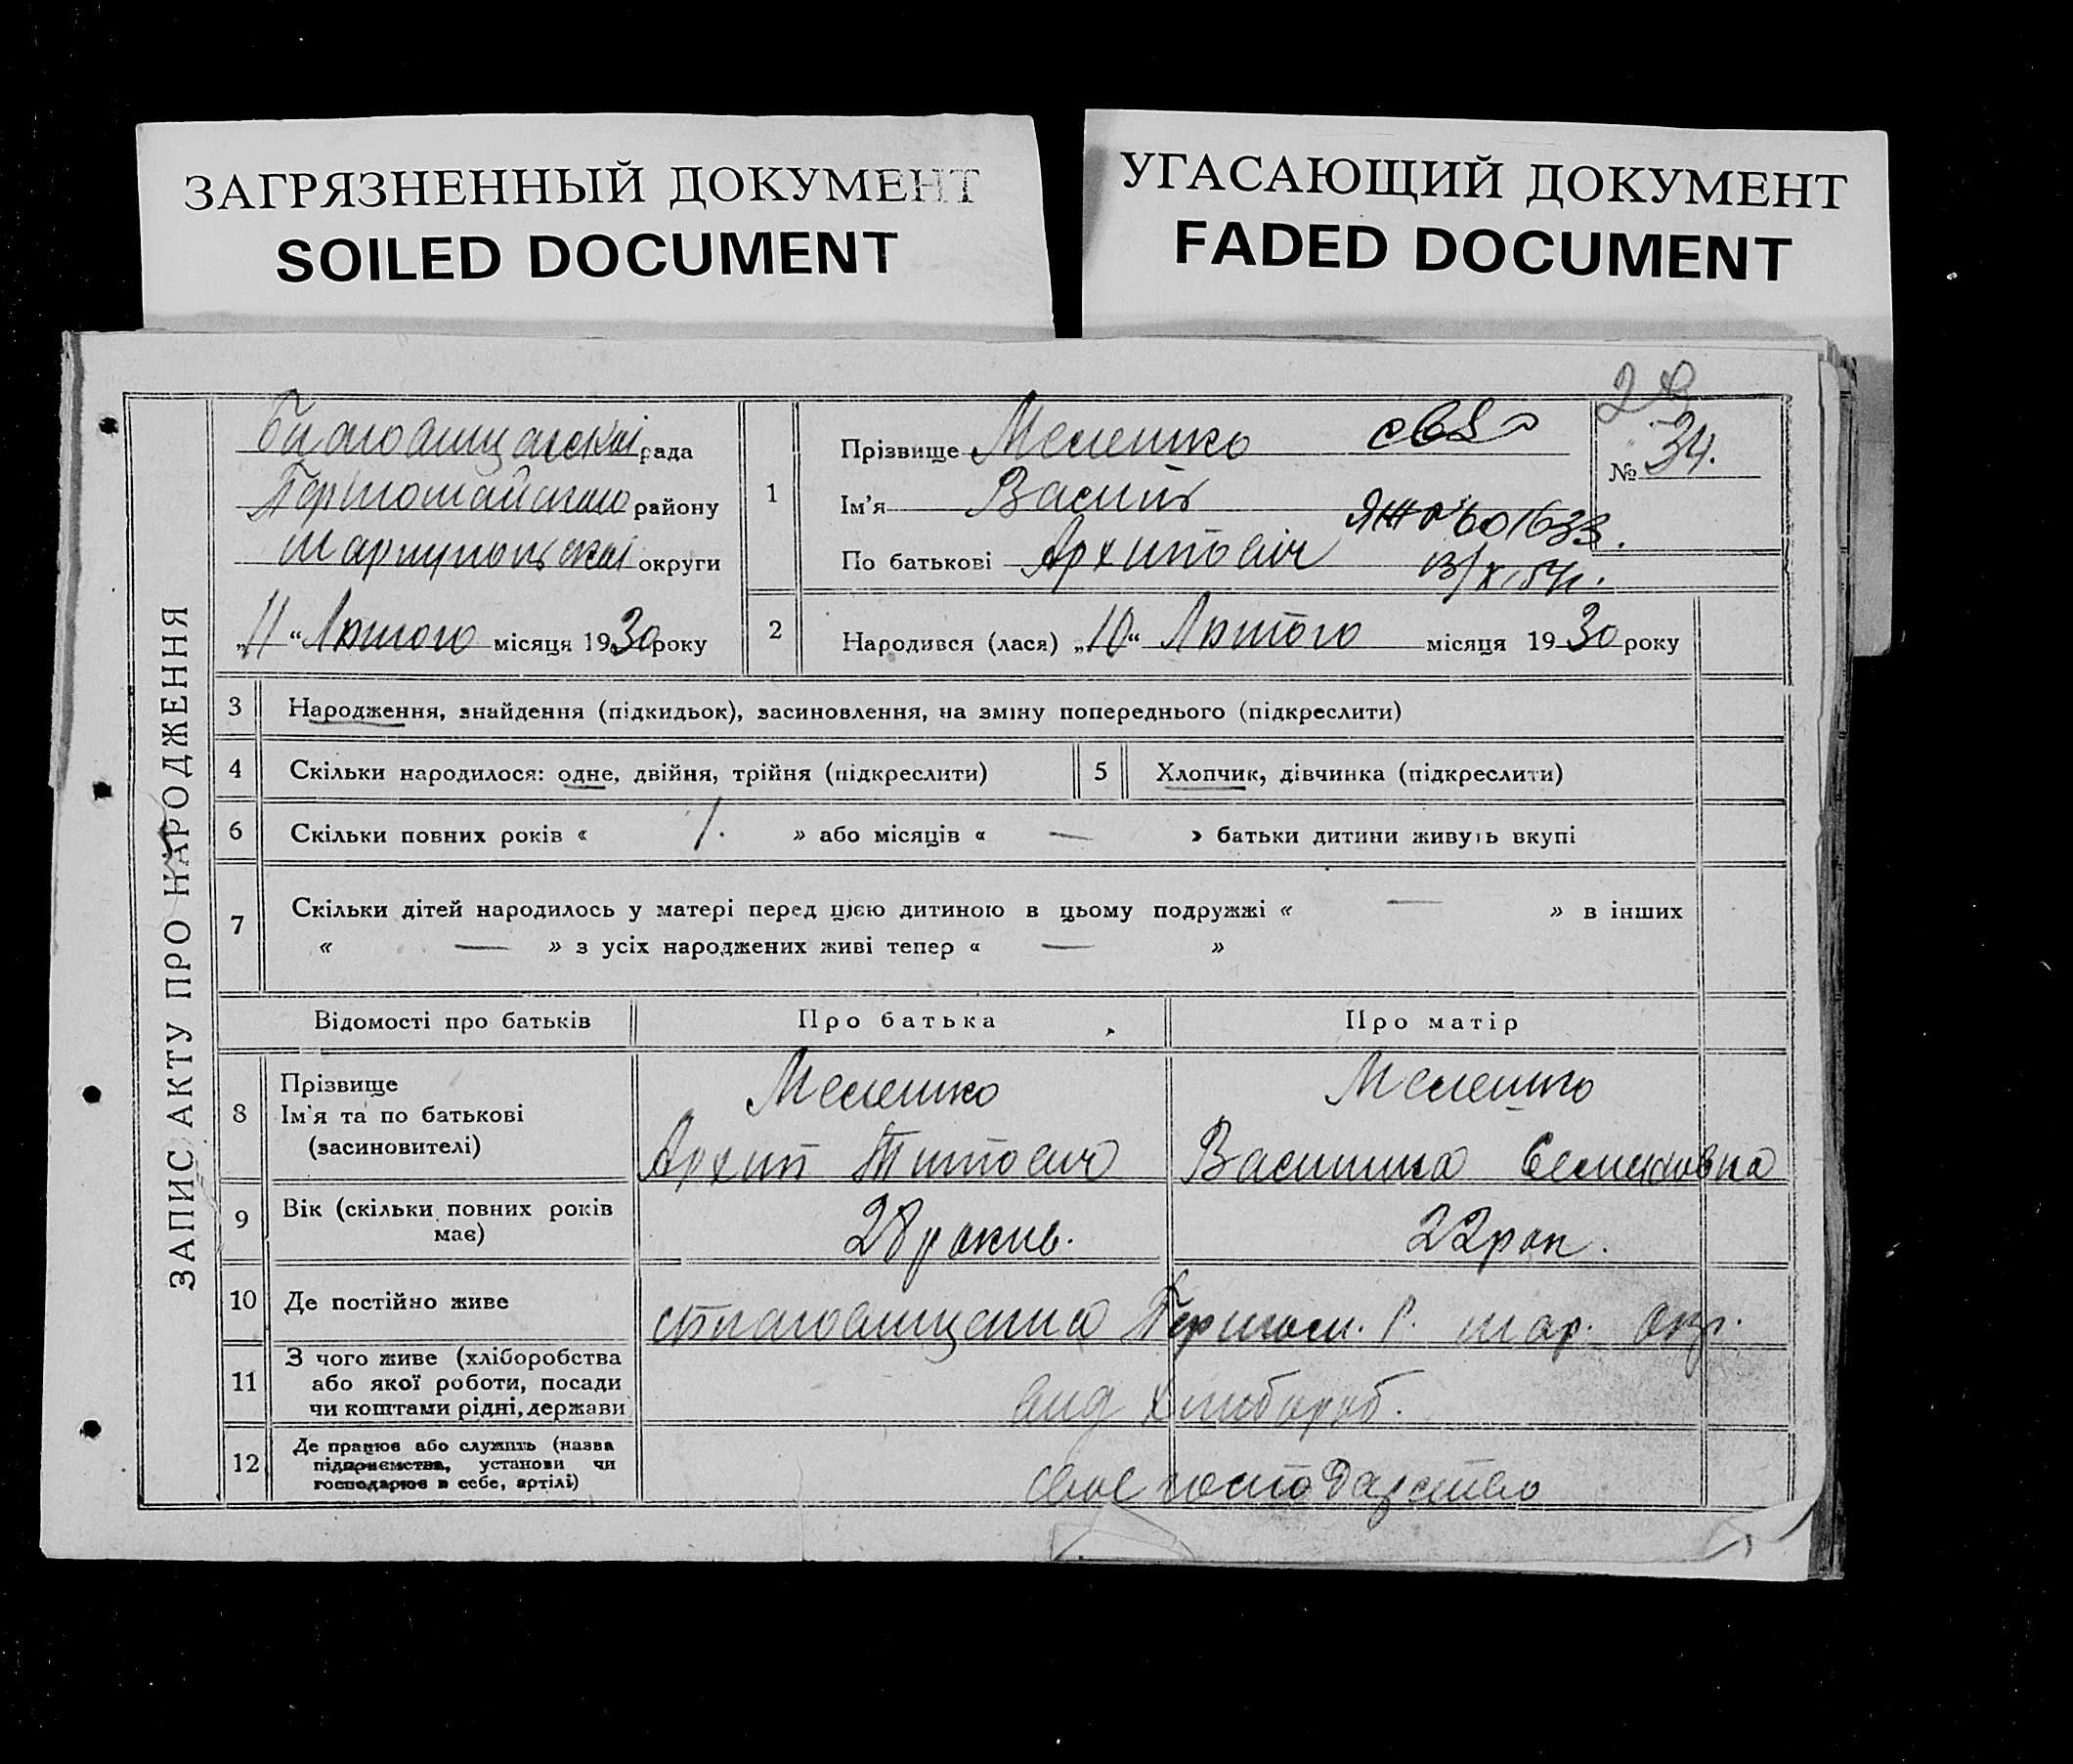 ЗАГРЯЗНЕННЫЙ ДОКУМЕНТ
SOILED DOCUMENT
УГАСАЮЩИЙ ДОКУМЕНТ
FADED DOCUMENT
ЗАПИС АКТУ ПРО НАРОДЖЕННЯ
рада
району
округи
„11“ Лютого місяця 1930 року
№ 34.
1
Прізвище Мелешко
Ім'я Василь
По батькові Архипович
ЯЖ № 601633.
2
Народився (лася) „10“ Лютого місяця 1930 року
3 Народження, знайдення (підкидьок), засиновлення, на зміну попереднього (підкреслити)
4 Скільки народилося: одне, двійня, трійня (підкреслити)
5 Хлопчик, дівчинка (підкреслити)
6 Скільки повних років « 1. » або місяців « — » батьки дитини живуть вкупі
7 Скільки дітей народилось у матері перед цією дитиною в цьому подружжі « — » в інших
« — » з усіх народжених живі тепер « — »
Відомості про батьків Про батька Про матір
8 Прізвище Мелешко Мелешко
Ім'я та по батькові
(засиновителі) Архип Титович Василина Семеновна
9 Вік (скільки повних років
має) 28  22 рок.
10 Де постійно живе
11 З чого живе (хліборобства
або якої роботи, посади
чи коштами рідні, держави
хлибороб.
12 Де працює або служить (назва
підприємства, установи чи
господарює в себе, артілі)
свое господарство